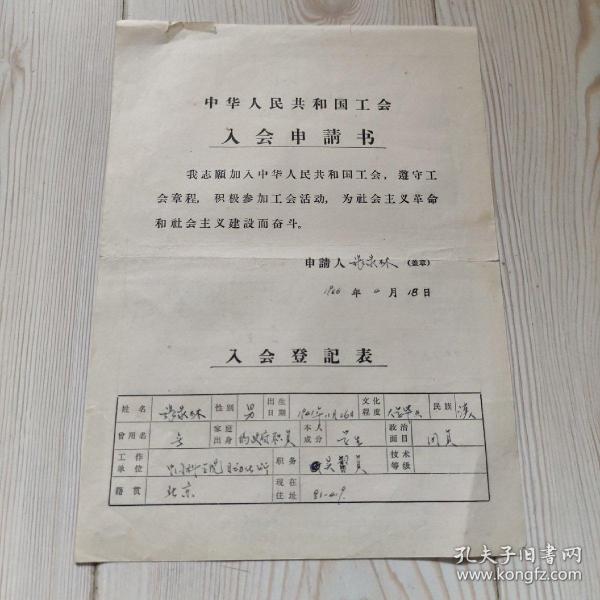 中华人民共和国工会
入会申請书
我志願加入中华人民共和国工会，遵守工
会章程，积极参加工会活动，为社会主义革命
和社会主义建設而奋斗。
申請人 （盖章）
1966 年 月 18 日
入会登記表
姓名 性别 男 出生日期 文化程度 民族 汉
曾用名 无 家庭出身 伪政府职员 本人成分 学生 政治面目 团员
工作单位 中国科学院自动化所 职务 实習員 技术等级
籍贯 北京 现在住址
孔夫子旧书网
www.kongfz.com